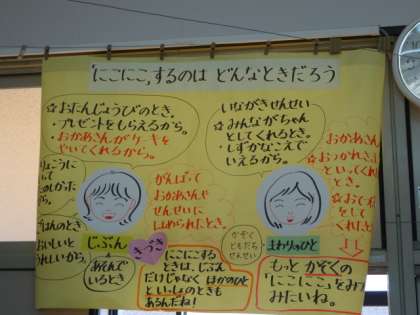 "にこにこ"するのは どんなときだろう
☆おたんじょうびのとき.
・プレゼントをもらえるから。
・おかあさんがケーキを
やいてくれるから。
いながきせんせい
☆みんながちゃん
としてくれるとき。
・しずかなこえで
いえるから。
おかあさん
☆おつかれさま
といってくれ
とき。
がんばって
おかあさんや
せんせいに
ほめられたとき。
りょこうに
って
のしかった
から。
ごはんのとき
おいしいと
うれしいから。
じぶん
あそんで
いるとき
かぞく
ともだち
せんせい
まわりのひと
にこにこする
ときは、じぶん
だけじゃなく ほかのひと
と いっしょのときも
あるんだね!
もっと かぞくの
「にこにこ」をみつ
みたいね。